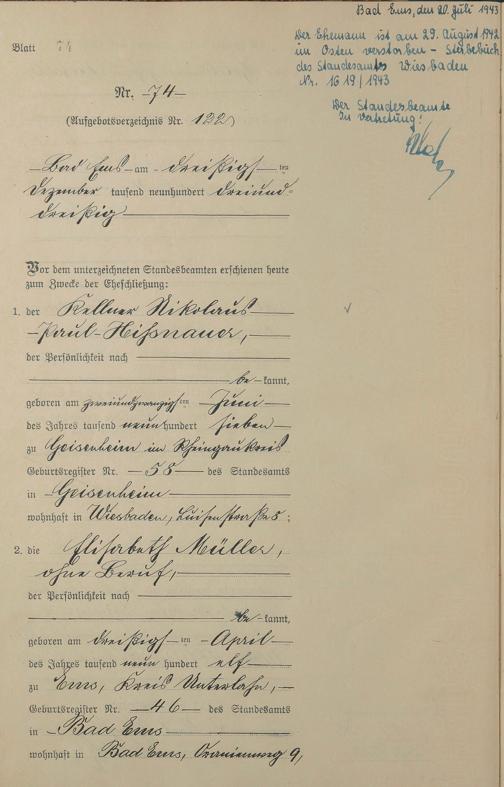 Bad Ems, den 20. Juli 1943
Der Ehemann ist am 29. August 1942
im Osten verstorben - Sterbebuch
des Standesamts Wiesbaden
Nr. 1619/1943
Der Standesbeamte
In Vertretung:
Blatt 74
Nr. 74
(Aufgebotsverzeichnis Nr. 122)
Bad Ems am dreißigsten
Dezember tausend neunhundert dreiund-
dreißig
Vor dem unterzeichneten Standesbeamten erschienen heute
zum Zwecke der Eheschließung:
1. der Kellner Nikolaus
Paul Hißnauer,
der Persönlichkeit nach
be kannt,
geboren am zweiundzwanzigsten Juni
des Jahres tausend neunhundert sieben
zu Geisenheim im Rheingaukreis
Geburtsregister Nr. 58 des Standesamts
in Geisenheim
wohnhaft in Wiesbaden, Luisenstraße 5;
2. die Elisabeth Müller,
ohne Beruf,
der Persönlichkeit nach
be kannt,
geboren am dreißigsten April
des Jahres tausend neun hundert elf
zu Ems, Kreis Unterlahn,
Geburtsregister Nr. 46 des Standesamts
in Bad Ems
wohnhaft in Bad Ems, Oranienweg 9,